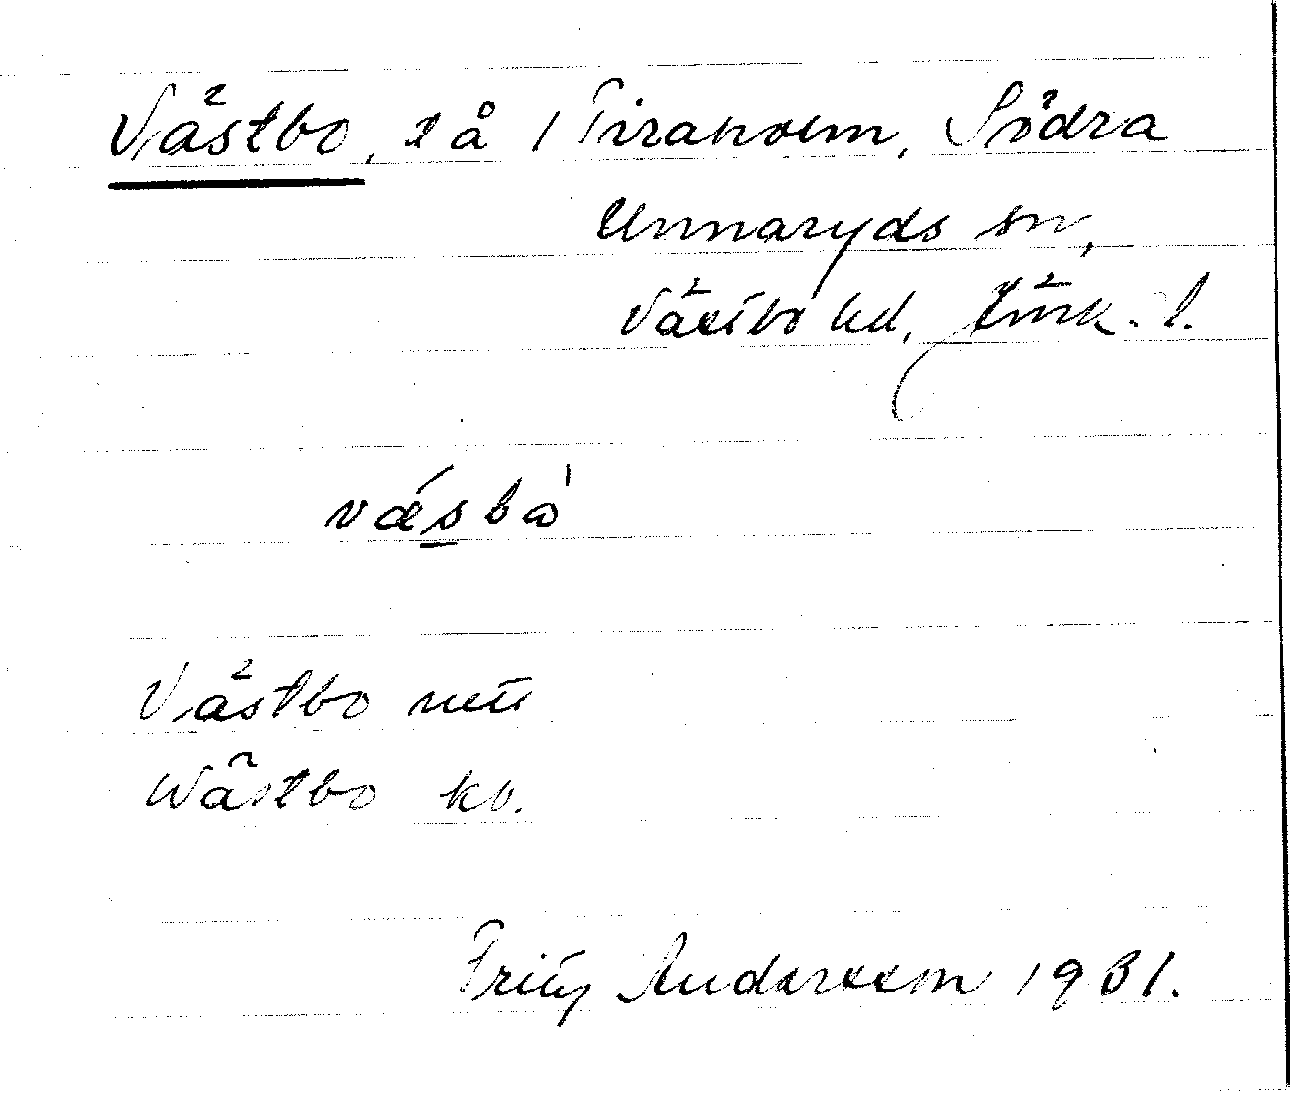 Västbo, lå / Tiraholm, Södra
Unnaryds sn,
Västbo hd, Jönk. l.
vǽsbo̍
Västbo
Wästbo kb.
Fritz Andersson 1931.